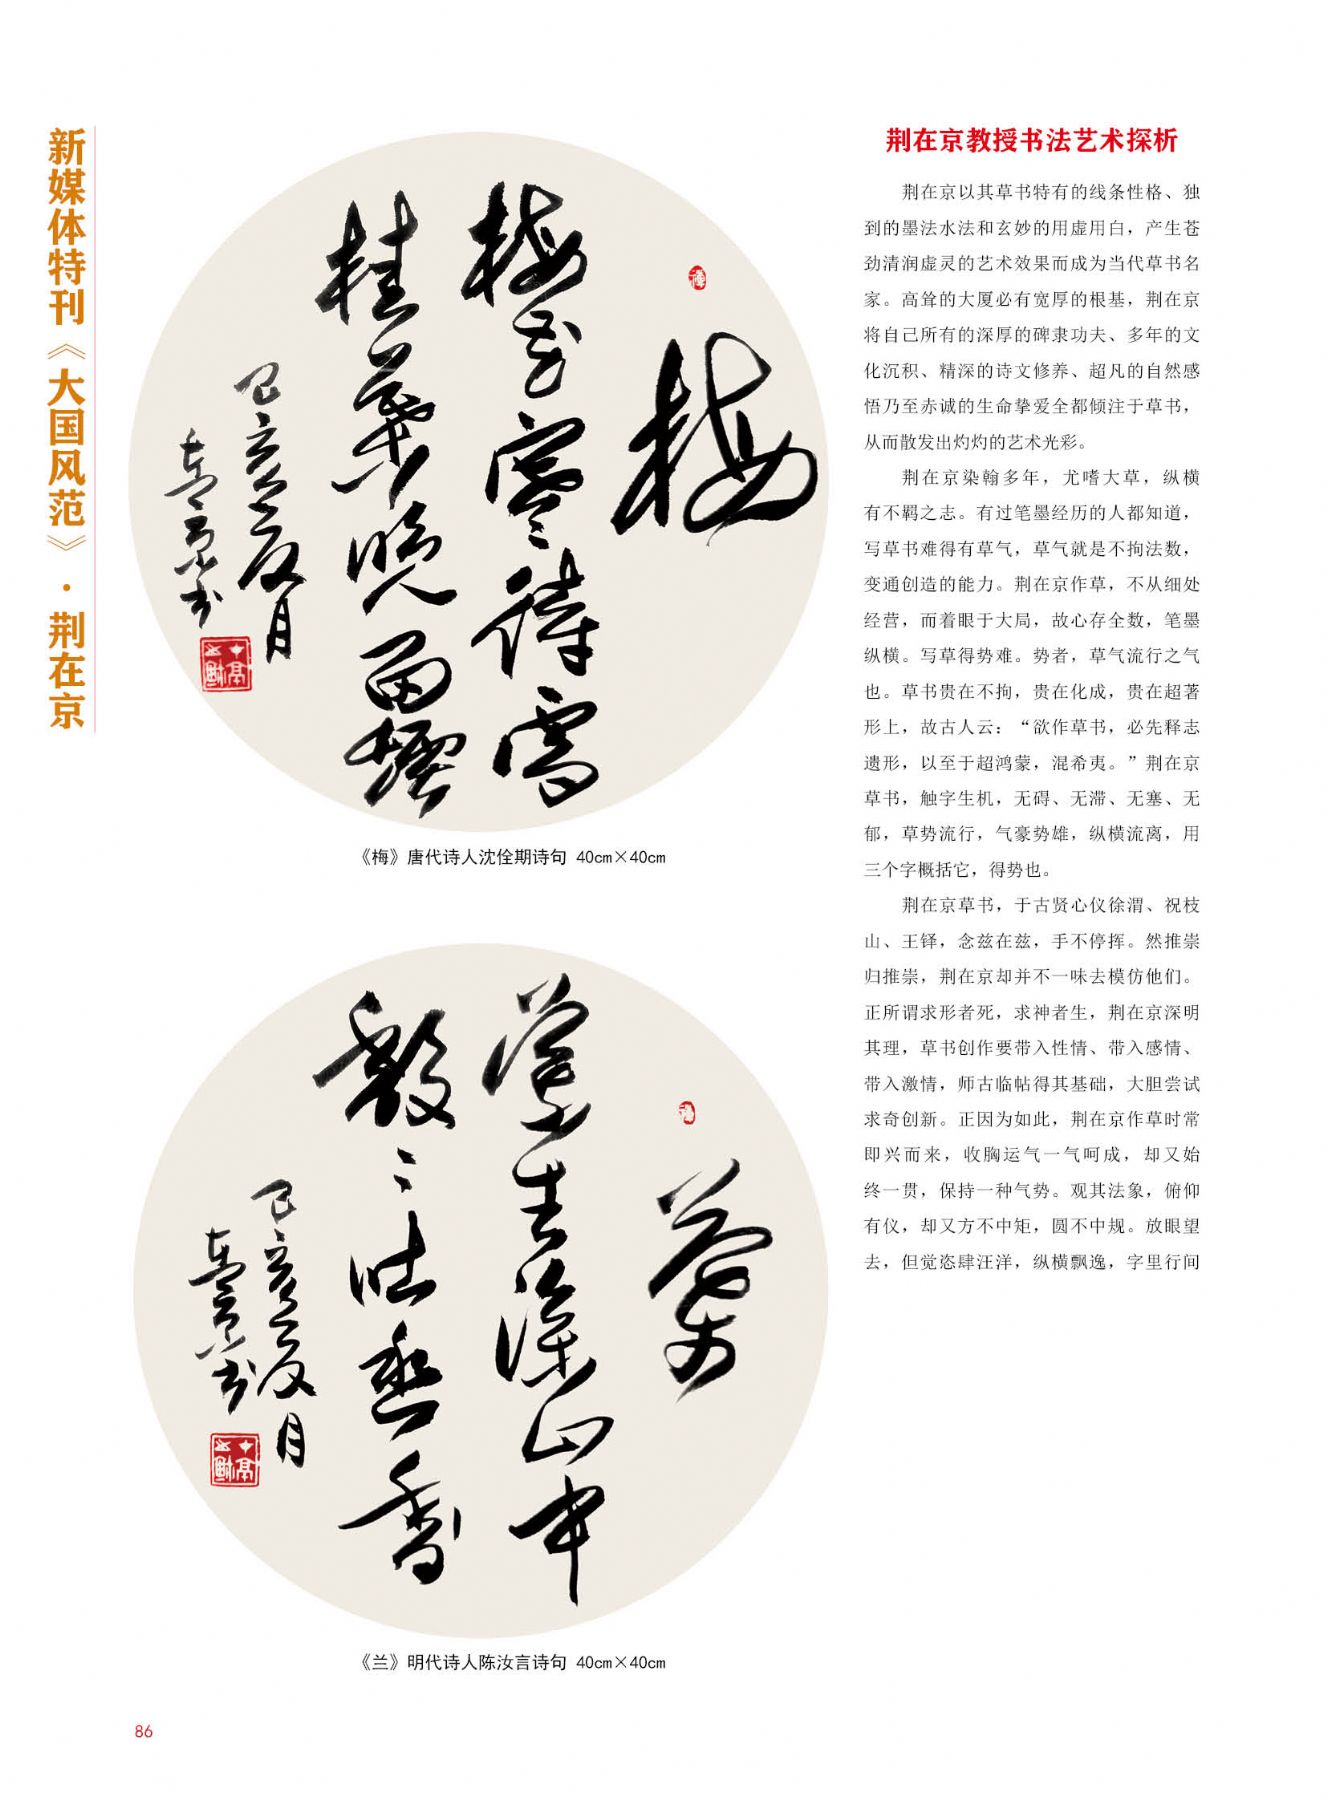 新媒体特刊《大国风范》·荆在京
梅
梅花寒待雪
桂叶晚留烟
己亥夏月
在京书
《梅》唐代诗人沈佺期诗句 40cm×40cm
兰
兰生深山中
馥馥吐幽香
己亥夏月
在京书
《兰》明代诗人陈汝言诗句 40cm×40cm
荆在京教授书法艺术探析
荆在京以其草书特有的线条性格、独
到的墨法水法和玄妙的用虚用白，产生苍
劲清润虚灵的艺术效果而成为当代草书名
家。高耸的大厦必有宽厚的根基，荆在京
将自己所有的深厚的碑隶功夫、多年的文
化沉积、精深的诗文修养、超凡的自然感
悟乃至赤诚的生命挚爱全都倾注于草书，
从而散发出灼灼的艺术光彩。
荆在京染翰多年，尤嗜大草，纵横
有不羁之志。有过笔墨经历的人都知道，
写草书难得有草气，草气就是不拘法数，
变通创造的能力。荆在京作草，不从细处
经营，而着眼于大局，故心存全数，笔墨
纵横。写草得势难。势者，草气流行之气
也。草书贵在不拘，贵在化成，贵在超著
形上，故古人云：“欲作草书，必先释志
遗形，以至于超鸿蒙，混希夷。”荆在京
草书，触字生机，无碍、无滞、无塞、无
郁，草势流行，气豪势雄，纵横流离，用
三个字概括它，得势也。
荆在京草书，于古贤心仪徐渭、祝枝
山、王铎，念兹在兹，手不停挥。然推崇
归推崇，荆在京却并不一味去模仿他们。
正所谓求形者死，求神者生，荆在京深明
其理，草书创作要带入性情、带入感情、
带入激情，师古临帖得其基础，大胆尝试
求奇创新。正因为如此，荆在京作草时常
即兴而来，收胸运气一气呵成，却又始
终一贯，保持一种气势。观其法象，俯仰
有仪，却又方不中矩，圆不中规。放眼望
去，但觉恣肆汪洋，纵横飘逸，字里行间
86